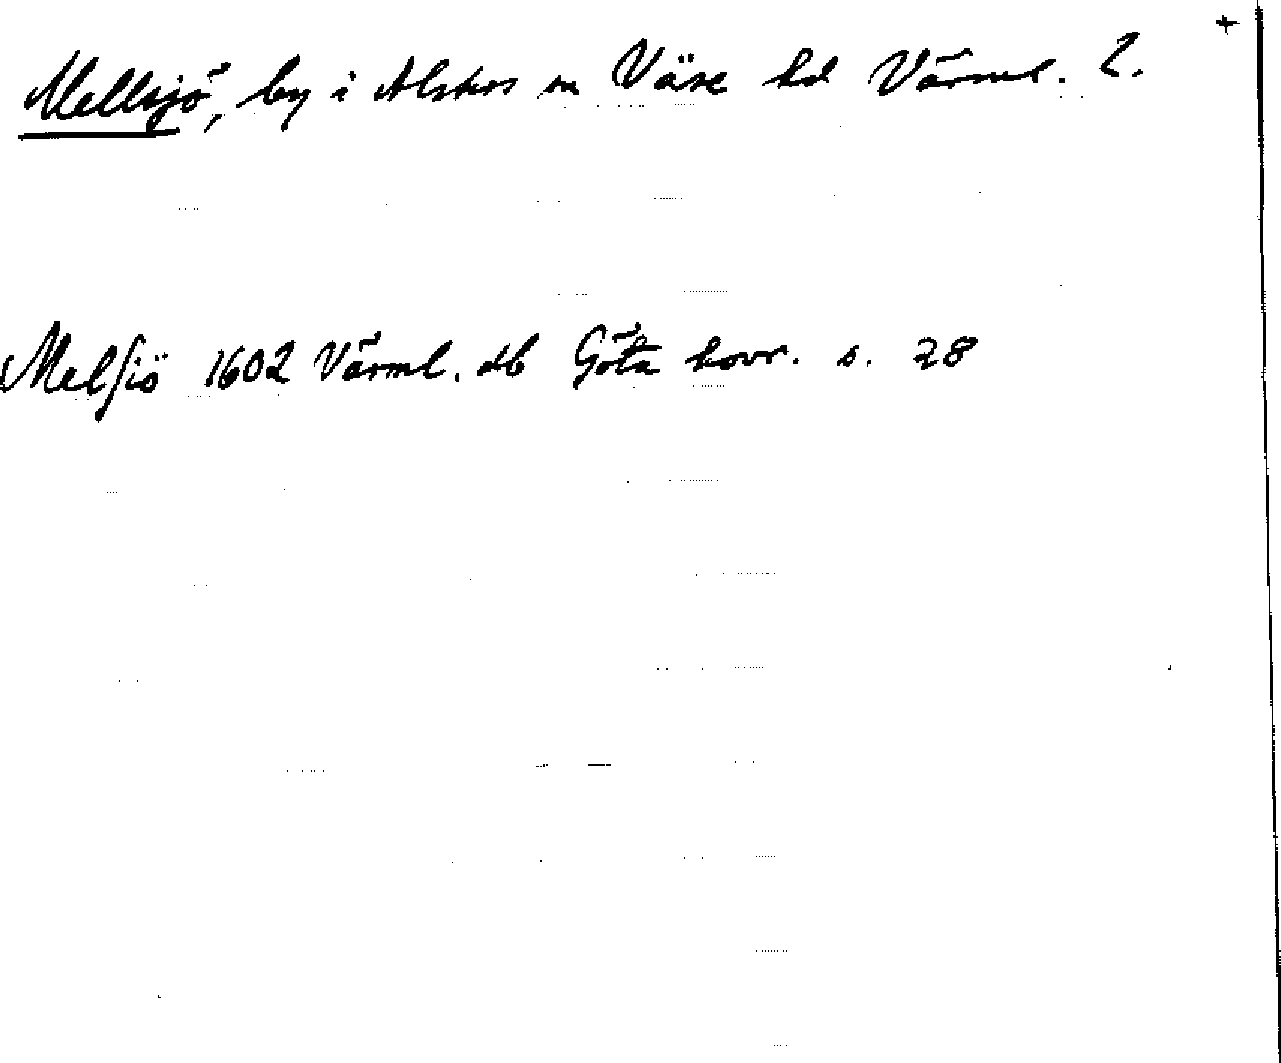 +
Mellsjö, by i Alsters sn Väse hd Värml. l.
Melsiö 1602 Värml. db Göta hovr. s. 28